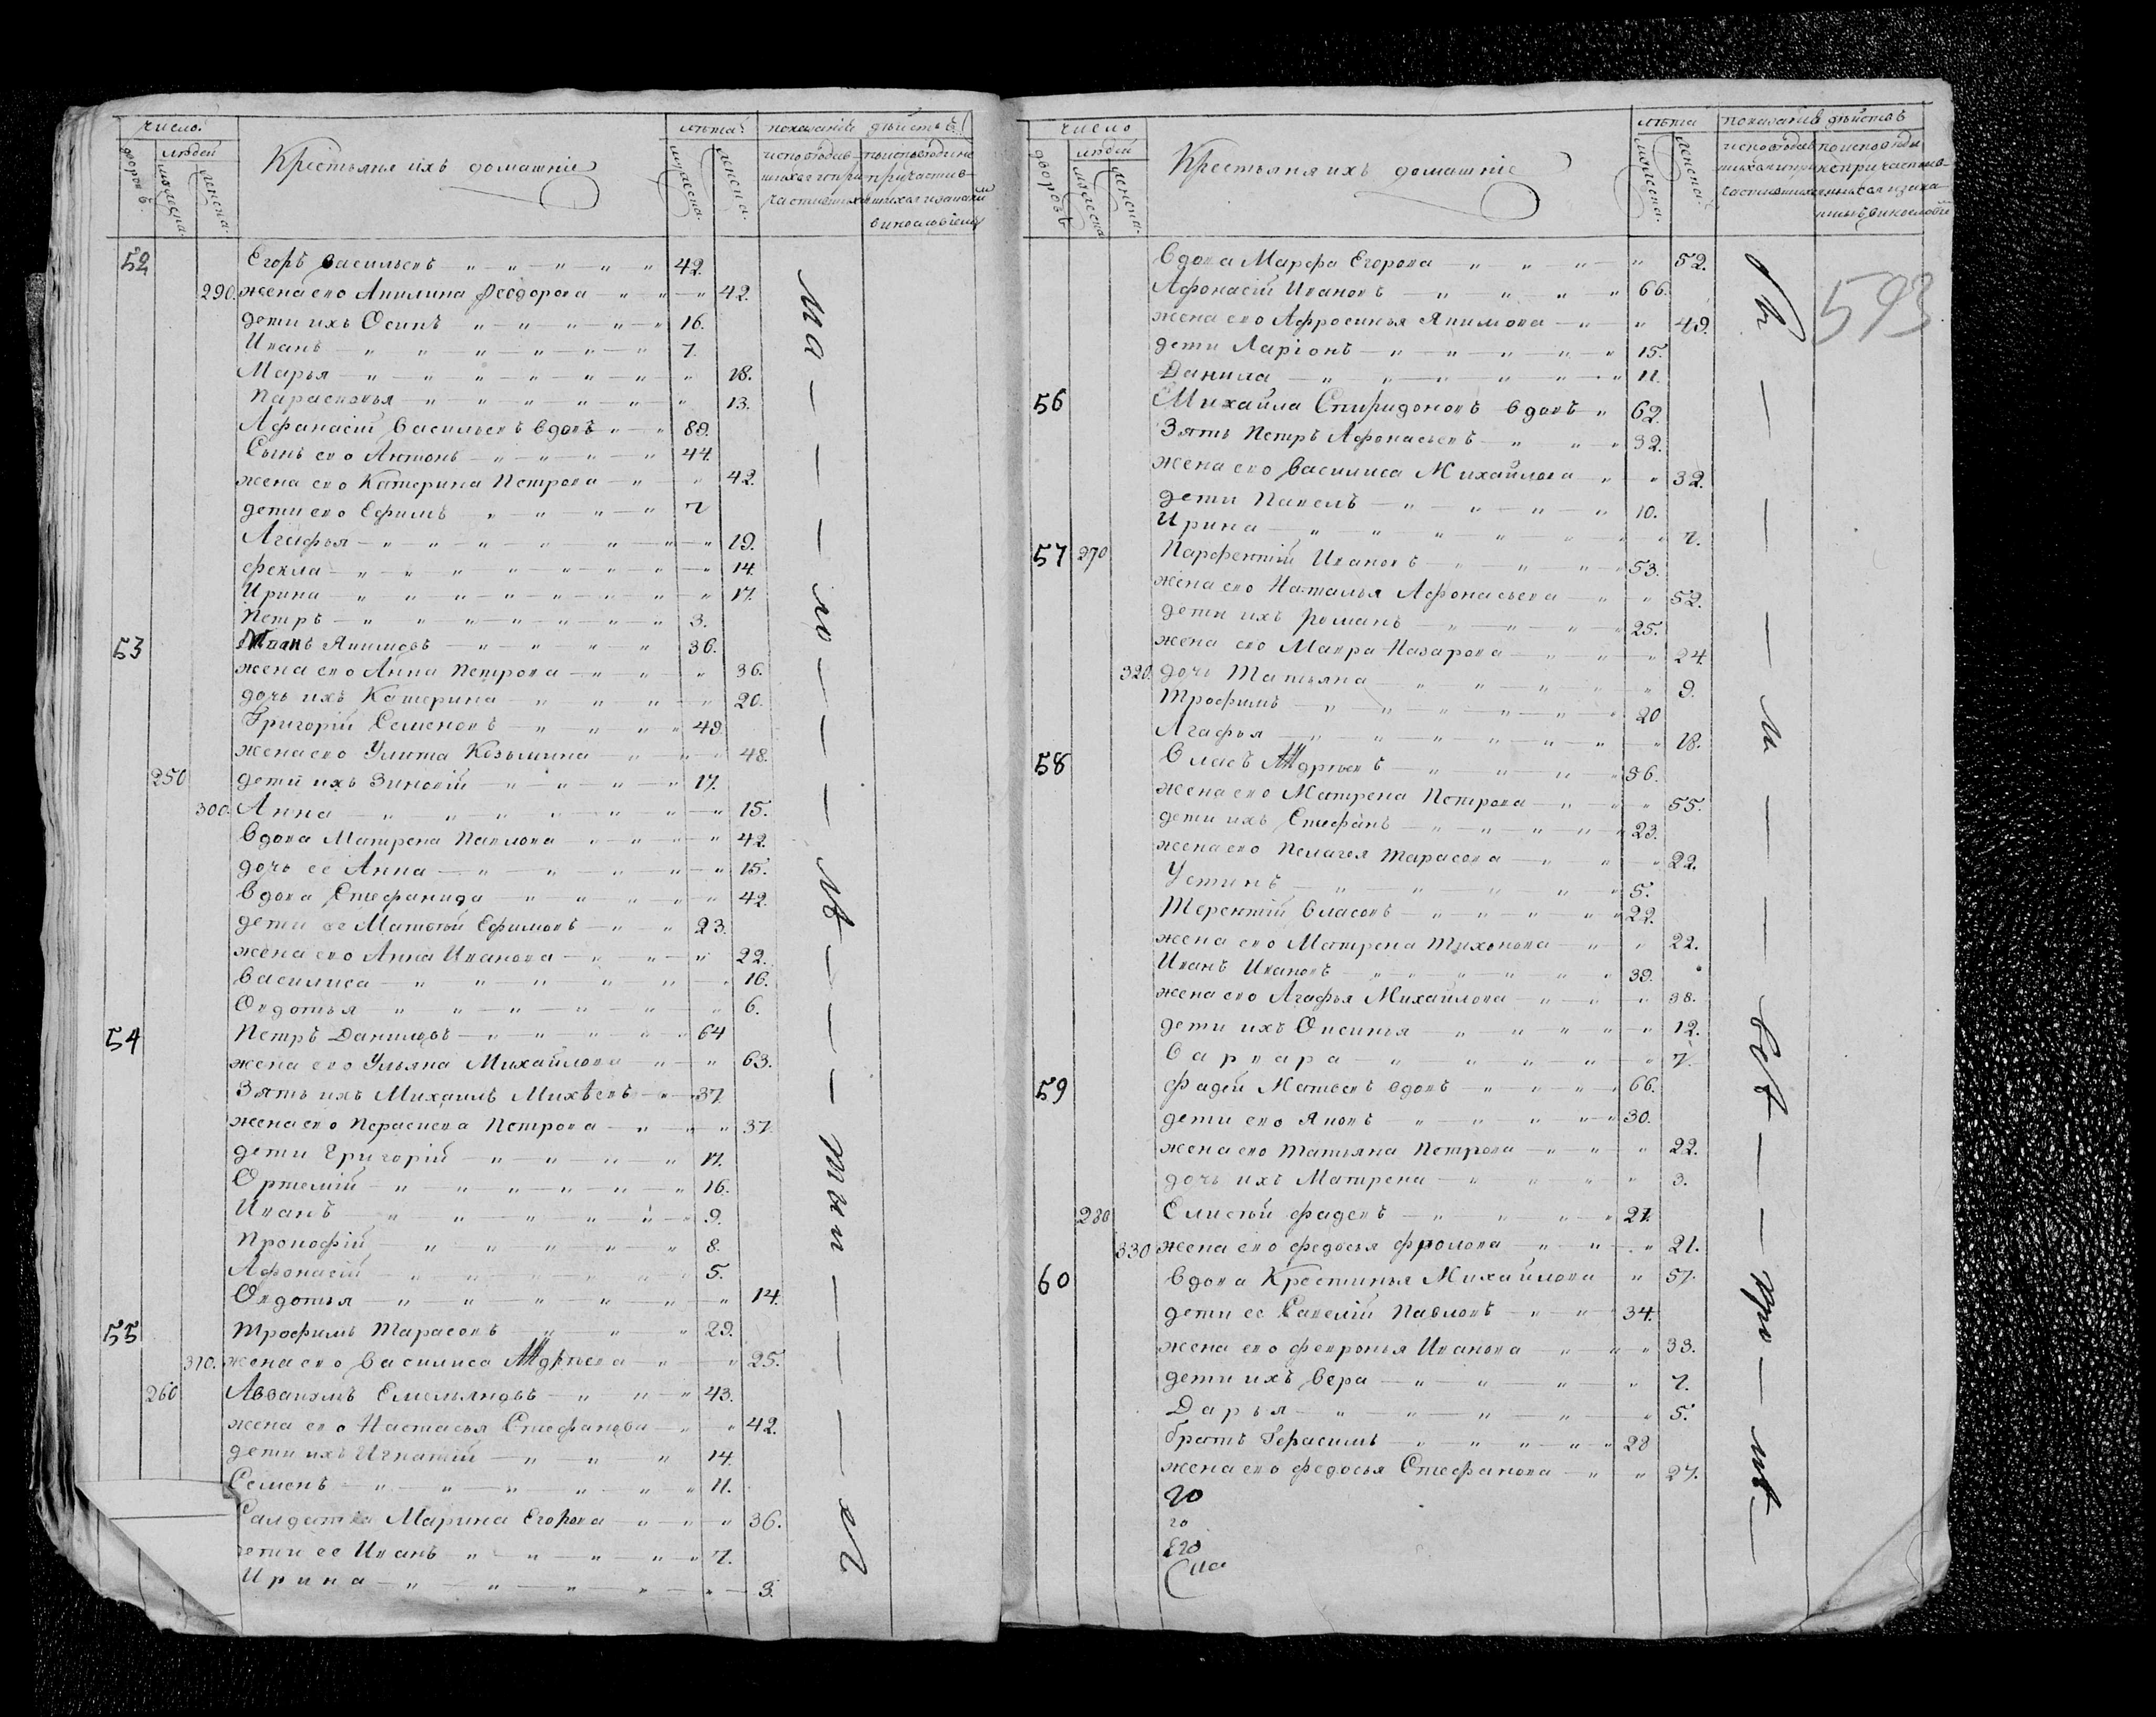 число.
лѣта
показанїе дѣйствъ
дворовъ.
людей
мужеска.
женска.
Крестьяня ихъ домашнїе
мужеска.
женска.
52 Егоръ Васильевъ 42.
290. жена его Акилина Феодорова 42.
дети ихъ Осипъ 16.
Иванъ 7.
Марья 18.
Парасковья 13.
Афанасїй Васильевъ вдовъ 89.
Сынъ его Антонъ 44.
жена его Катерина Петрова 42.
дети его Ефимъ 7
Агафья 19.
Фекла 14.
Ирина 17.
Петръ 3.
53 Иванъ Якимовъ 36.
жена его Анна Петрова 36.
дочь ихъ Катерина 20.
Григорїй Семеновъ 49.
жена его Улита Козьмина 48.
250 дети ихъ Зиновїй 17.
300. Анна 15.
Вдова Матрена Павлова 42.
дочь ее Анна 15.
Вдова Стефанида 42.
дети ее Матвѣй Ефимовъ 23.
жена его Анна Иванова 22.
Василиса 16.
Овдотья 6.
54 Петръ Даниловъ 64
жена его Ульяна Михайлова 63.
Зять ихъ Михаилъ Михѣевъ 37.
жена его Пераскева Петрова 37.
дети Григорїй 17.
Ортемїй 16.
Иванъ 9.
Прокофїй 8.
Афонасїй 5.
Овдотья 14.
55 Трофимъ Тарасовъ 29.
310. жена его Василиса 25.
260 Аввакумъ Емельяновъ 43.
жена его Настасья Стефанова 42.
дети ихъ Игнатїй 14.
Семенъ 11.
Салдатка Марина Егорова 36.
дети ее Иванъ 7.
Ирина 3.
число
лѣта
показанїе дѣйствъ
дворовъ
людей
мужеска
женска.
Крестьяня ихъ домашнїе
мужеска.
женска.
593
Вдова Марфа Егорова 52.
Афонасїй Ивановъ 66.
жена его Афросинья Якимова 49.
дети Ларїонъ 15.
Данила 11.
56 Михайла Спиридоновъ вдовъ 62.
Зять Петръ Афонасьевъ 32.
жена его Василиса Михайлова 32.
дети Павелъ 10.
Ирина 7.
57 270 Парфентїй Ивановъ 53.
жена его Наталья Афонасьева 52.
дети ихъ Романъ 25.
жена его Мавра Назарова 24
320. дочь Татьяна 9.
Трофимъ 20
Агафья 18.
58 Власъ 56.
жена его Матрена Петрова 55.
дети ихъ Стефанъ 23.
жена его Пелагея Тарасова 22.
Устинъ 5.
Терентїй Власовъ 22.
жена его Матрена Тихонова 22.
Иванъ Ивановъ 39.
жена его Агафья Михайлова 38.
дети ихъ Оксинья 12.
Варвара 7.
59 Фадей Матвевъ вдовъ 66.
дети его Яковъ 30.
жена его Татьяна Петрова 22.
дочь ихъ Матрена 3.
280 Елисѣй Фадевъ 27.
330 жена его Федосья Фролова 21.
60 Вдова Крестинья Михайлова 57.
дети ее Савелїй Павловъ 34.
жена его Февронья Иванова 33.
дети ихъ Вера 7.
Дарья 5.
братъ Герасимъ 28
жена его Федосья Стефанова 27.